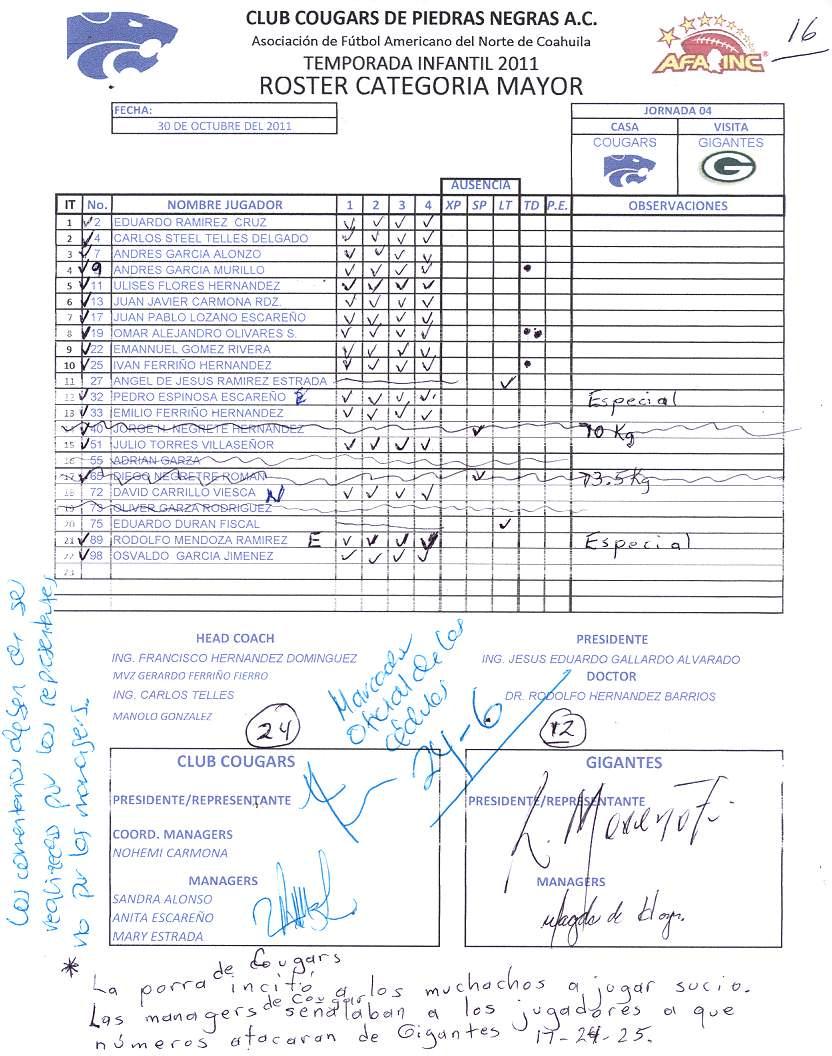 CLUB COUGARS DE PIEDRAS NEGRAS A.C.
Asociación de Fútbol Americano del Norte de Coahuila
TEMPORADA INFANTIL 2011
ROSTER CATEGORIA MAYOR
AFAINC
16
FECHA:
30 DE OCTUBRE DEL 2011
JORNADA 04
CASA VISITA
COUGARS GIGANTES
G
AUSENCIA
IT No. NOMBRE JUGADOR 1 2 3 4 XP SP LT TD P.E. OBSERVACIONES
1 ✓2 EDUARDO RAMIREZ CRUZ ✓ ✓ ✓ ✓
2 ✓4 CARLOS STEEL TELLES DELGADO ✓ ✓ ✓ ✓
3 ✓7 ANDRES GARCIA ALONZO ✓ ✓ ✓ ✓
4 ✓9 ANDRES GARCIA MURILLO ✓ ✓ ✓ ✓ •
5 ✓11 ULISES FLORES HERNANDEZ ✓ ✓ ✓ ✓
6 ✓13 JUAN JAVIER CARMONA RDZ. ✓ ✓ ✓ ✓
7 ✓17 JUAN PABLO LOZANO ESCAREÑO ✓ ✓ ✓ ✓
8 ✓19 OMAR ALEJANDRO OLIVARES S. ✓ ✓ ✓ ✓ ••
9 ✓22 EMANNUEL GOMEZ RIVERA ✓ ✓ ✓ ✓
10 ✓25 IVAN FERRIÑO HERNANDEZ ✓ ✓ ✓ ✓ •
11 27 ANGEL DE JESUS RAMIREZ ESTRADA ✓
12 ✓32 PEDRO ESPINOSA ESCAREÑO E ✓ ✓ ✓ ✓ Especial
13 ✓33 EMILIO FERRIÑO HERNANDEZ ✓ ✓ ✓ ✓
✓40 JORGE N. NEGRETE HERNANDEZ ✓ 70 Kg
15 ✓51 JULIO TORRES VILLASEÑOR ✓ ✓ ✓ ✓
16 55 ADRIAN GARZA
17 ✓65 DIEGO NEGRETRE ROMAN ✓ 73.5 Kg
18 72 DAVID CARRILLO VIESCA N ✓ ✓ ✓ ✓
19 73 OLIVER GARZA RODRIGUEZ
20 75 EDUARDO DURAN FISCAL ✓
21 ✓89 RODOLFO MENDOZA RAMIREZ E ✓ ✓ ✓ ✓ Especial
22 ✓98 OSVALDO GARCIA JIMENEZ ✓ ✓ ✓ ✓
23
HEAD COACH
ING. FRANCISCO HERNANDEZ DOMINGUEZ
MVZ GERARDO FERRIÑO FIERRO
ING. CARLOS TELLES
MANOLO GONZALEZ
PRESIDENTE
ING. JESUS EDUARDO GALLARDO ALVARADO
DOCTOR
DR. RODOLFO HERNANDEZ BARRIOS
Marcador
Oficial de las
Cédulas
24-6
24
12
CLUB COUGARS
PRESIDENTE/REPRESENTANTE
COORD. MANAGERS
NOHEMI CARMONA
MANAGERS
SANDRA ALONSO
ANITA ESCAREÑO
MARY ESTRADA
GIGANTES
PRESIDENTE/REPRESENTANTE
MANAGERS
Los comentarios deben de ser
realizados por los representantes
no por los managers.
* La porra de Cougars incitó a los muchachos a jugar sucio.
Las managers de Cougars señalaban a los jugadores a que
números atacaran de Gigantes 17-24-25.